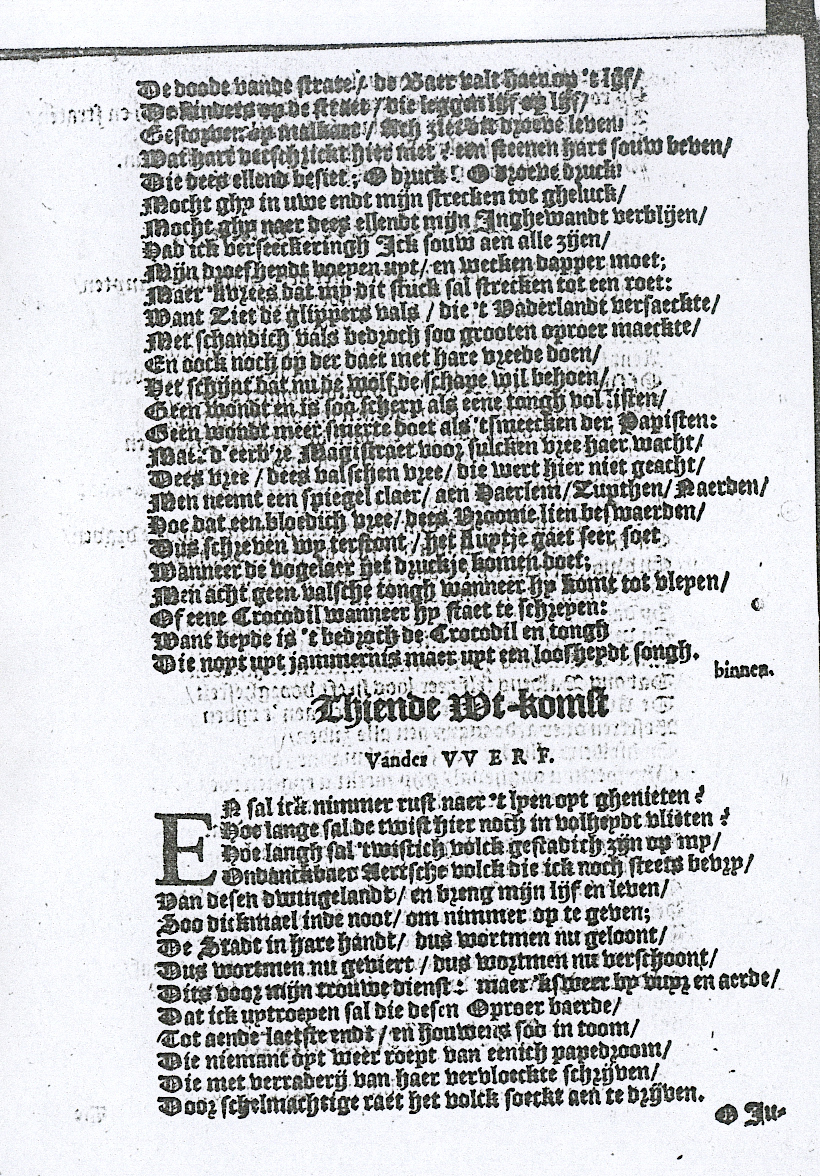 De doode vande strate / de Baer valt haer op 't lijf /
De kinders op de straet / die leggen lijf op lijf /
Gestorven op malkaer / Ach ziet die droeve leven!
Wat hart verschrickt hier niet? een steenen hart souw beven /
Die dees ellend besiet; O druck! O droeve druck!
Mocht ghy in uwe endt mijn strecken tot gheluck /
Mocht ghy naer dees ellendt mijn Inghewandt verblijen /
Had ick verseeckeringh Ick souw aen alle zijen /
Mijn droefheydt roepen uyt / en wecken dapper moet;
Maer 'k vrees dat my dit stuck sal strecken tot een roet:
Want Ziet de glippers vals / die 't Vaderlandt versaeckte /
Met schandich vals bedroch soo grooten oproer maeckte /
En oock noch op der daet met hare vreede doen /
Het schijnt dat nu de wolf de schape wil behoen /
Geen wondt en is soo scherp als eene tongh vol listen /
Geen wondt meer smerte doet als 't smeecken der Papisten:
Maer d'eerb're Magistraet voor sulcken vree haer wacht /
Dees vree / dees valschen vree / die wert hier niet geacht /
Men neemt een spiegel claer / aen Haerlem / Zutphen / Naerden /
Hoe dat een bloedich vree / dees Vroome lien beswaerden /
Dus schreven wy terstont / het fluytje gaet seer soet
Wanneer de vogelaer het druckje komen doet;
Men acht geen valsche tongh wanneer hy komt tot vleyen /
Of eene Crocodil wanneer hy staet te schreyen:
Want beyde is 't bedroch de Crocodil en tongh
Die noyt uyt jammernis maer uyt een loosheydt songh.
binnen.
Thiende Wt-komst
Vander VVERF.
EN sal ick nimmer rust naer 't lyen oyt ghenieten?
Hoe lange sal de twist hier noch in volheydt vlieten?
Hoe langh sal 't twistich volck gestadich zijn op my /
Ondanckbaer Aertsche volck die ick noch steets bevry /
Van desen dwingelandt / en breng mijn lijf en leven /
Soo dickmael inde noot / om nimmer op te geven;
De Stadt in hare handt / dus wortmen nu geloont /
Dus wortmen nu geviert / dus wortmen nu verschoont /
Dits voor mijn trouwe dienst: maer 'k sweer by vuyr en aerde /
Dat ick uytroeyen sal die desen Oproer baerde /
Tot aende laetste endt / en houwens soo in toom /
Die niemant oyt weer roept van eenich papedroom /
Die met verraderij van haer vervloeckte schrijven /
Door schelmachtige raet het volck soeckt aen te drijven.
O Ju-